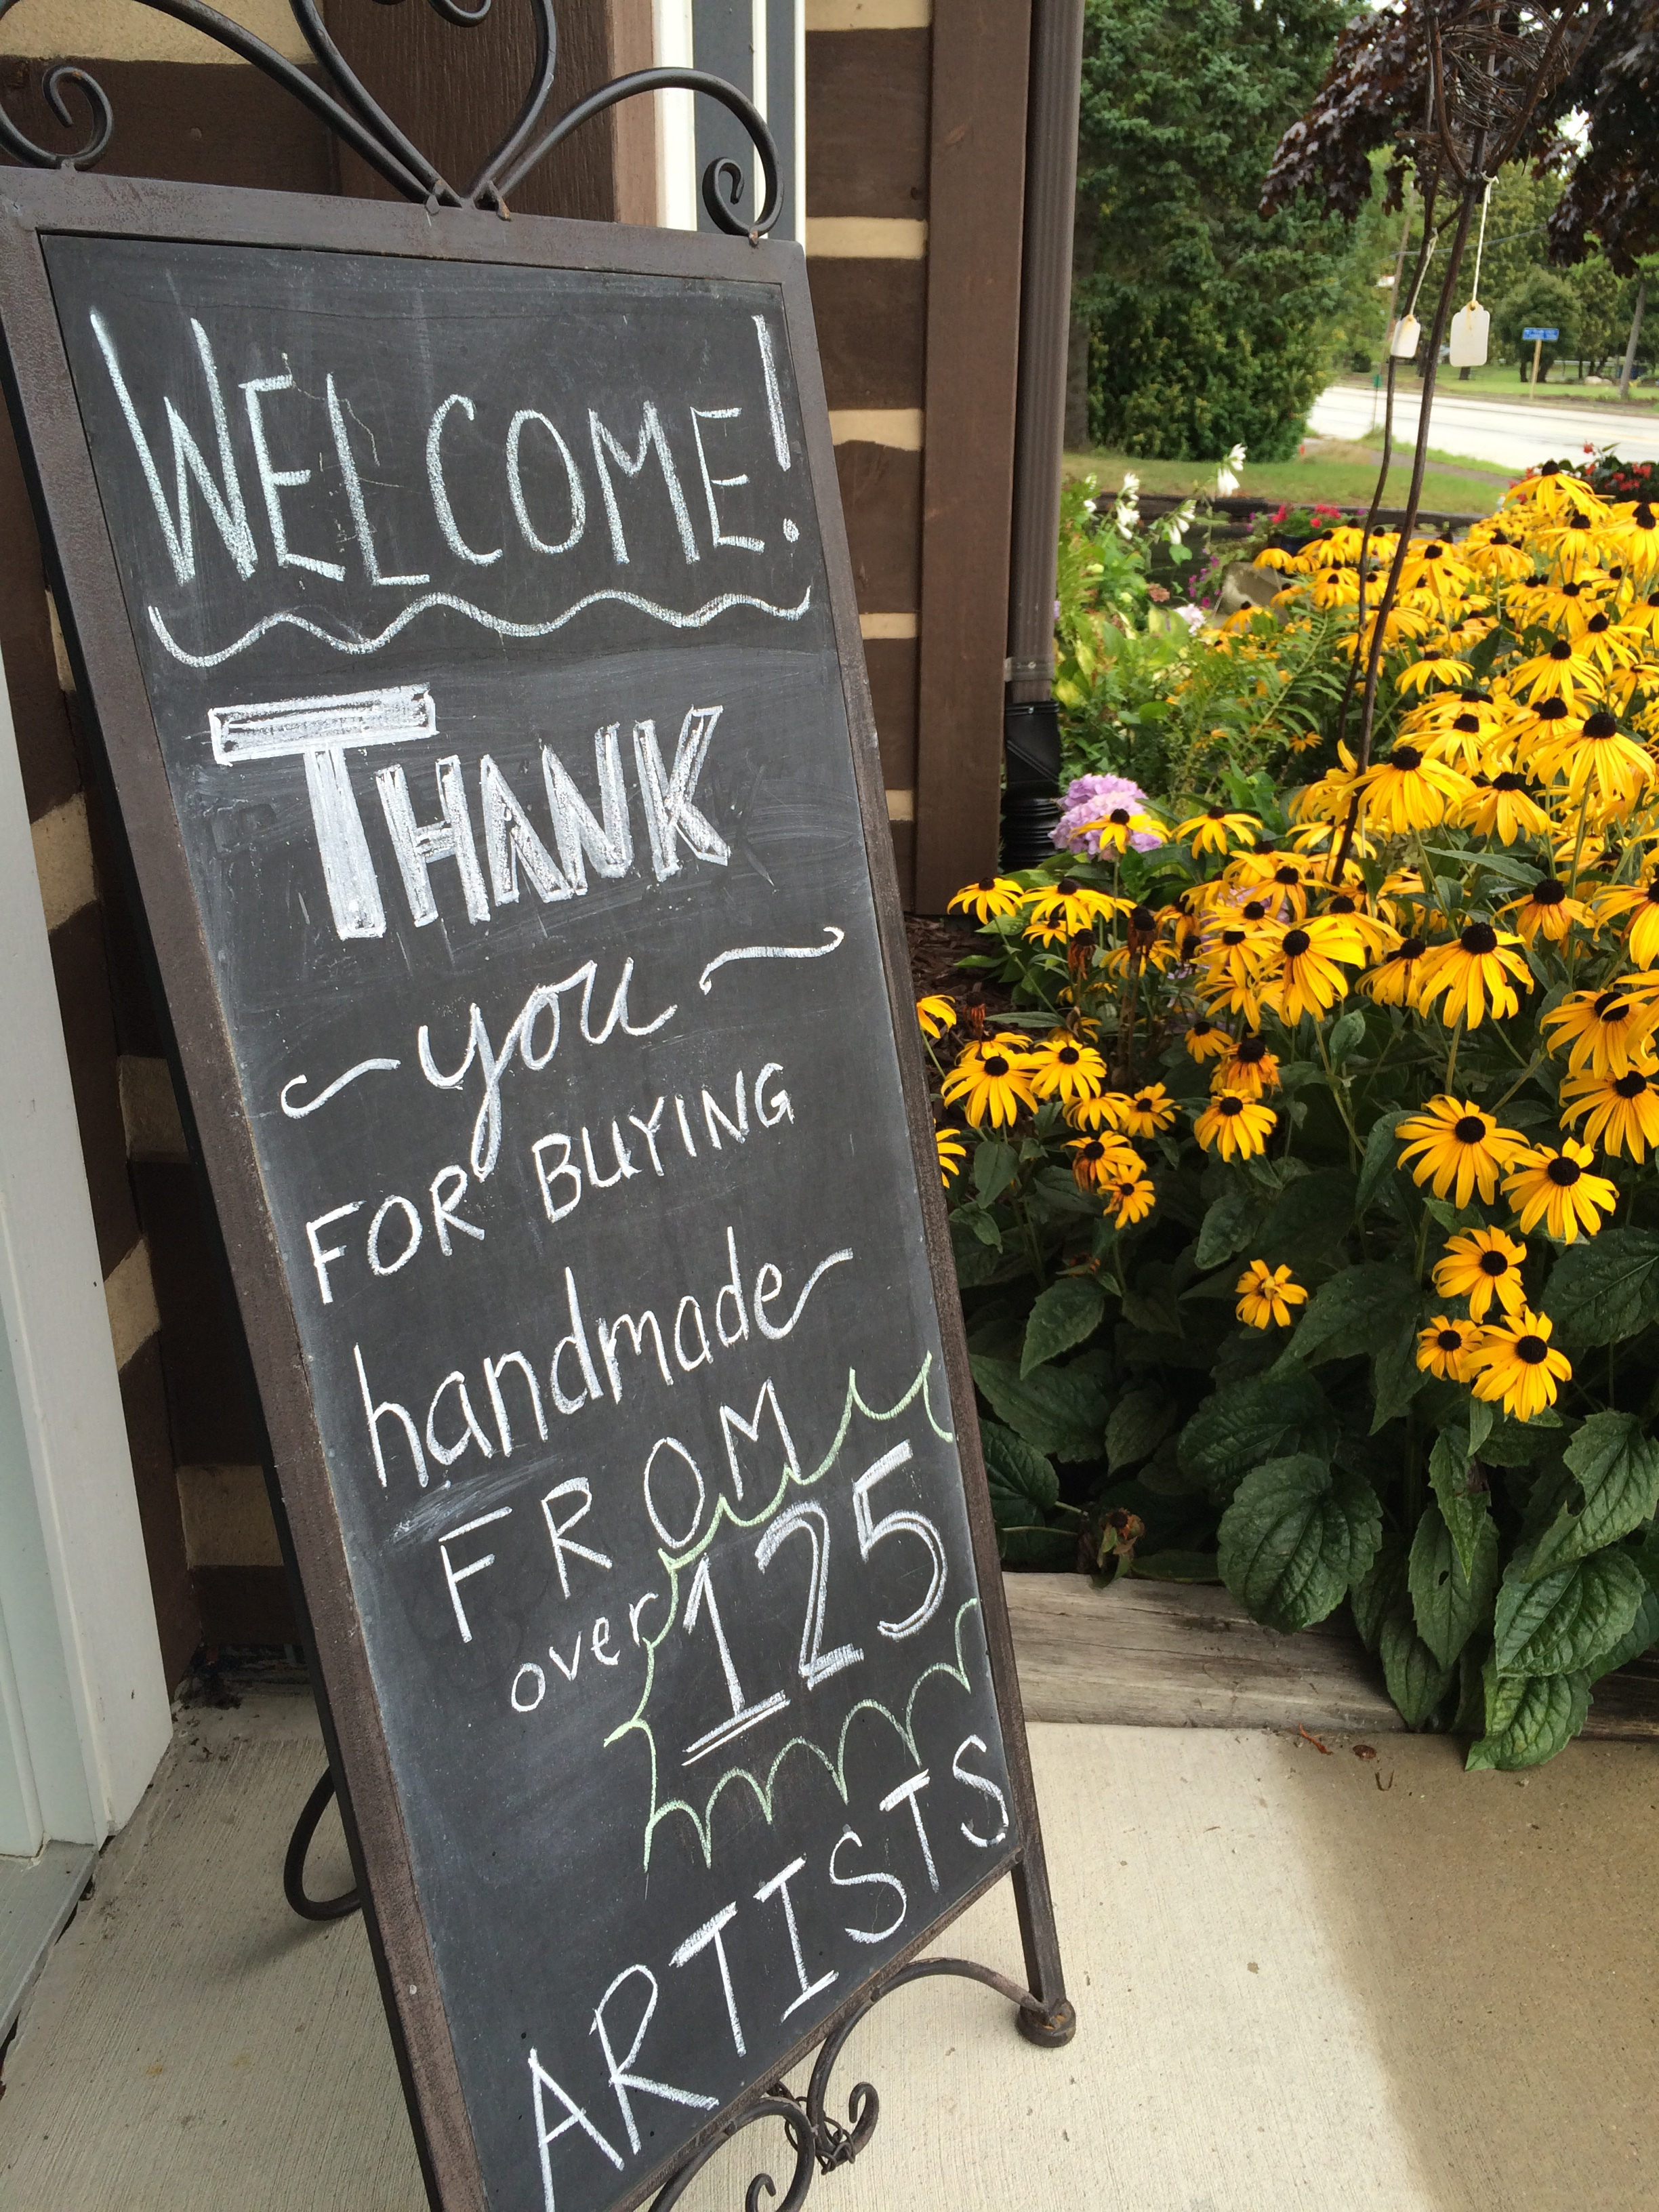 WELCOME!
THANK
you
FOR BUYING
handmade
FROM
over 125
ARTISTS